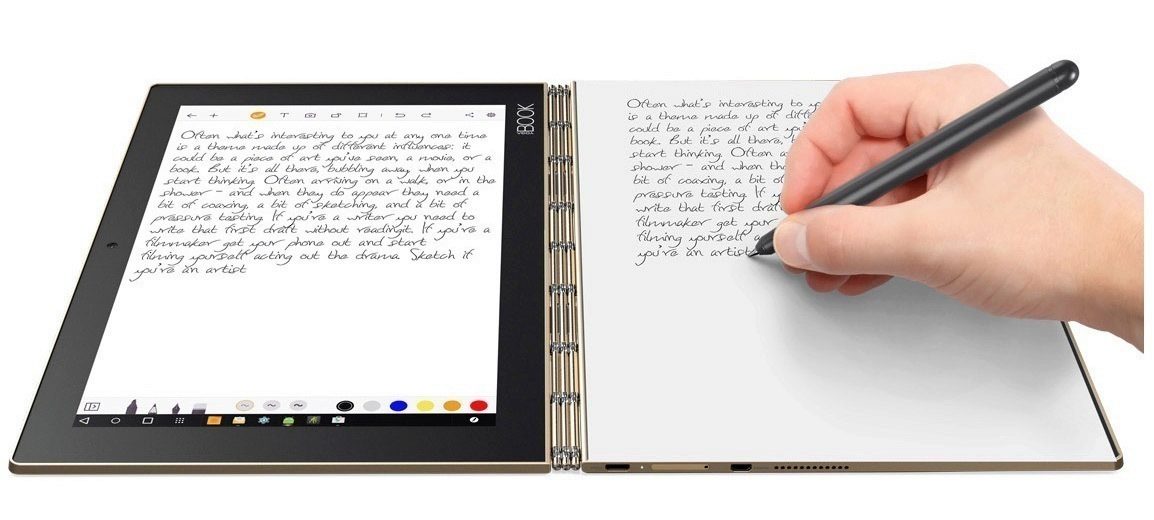 YOGA BOOK
Often what's interesting to you at any one time
is a theme made up of different influences: it
could be a piece of art you've seen, a movie, or a
book. But it's all there, bubbling away, when you
start thinking. Often arising on a walk, or in the
shower – and when they do appear they need a
bit of coaxing, a bit of sketching, and a bit of
pressure testing. If you're a writer you need to
write that first draft without readingit. If you're a
filmmaker get your phone out and start
filming yourself acting out the drama. Sketch if
you're an artist
Often what's interesting to
is a theme made up of
could be a piece of art
book. But it's all there,
start thinking. Often
shower – and when they
bit of coaxing, a bit of
pressure testing. If
write that first
filmmaker get your
filming yourself
you're an artist